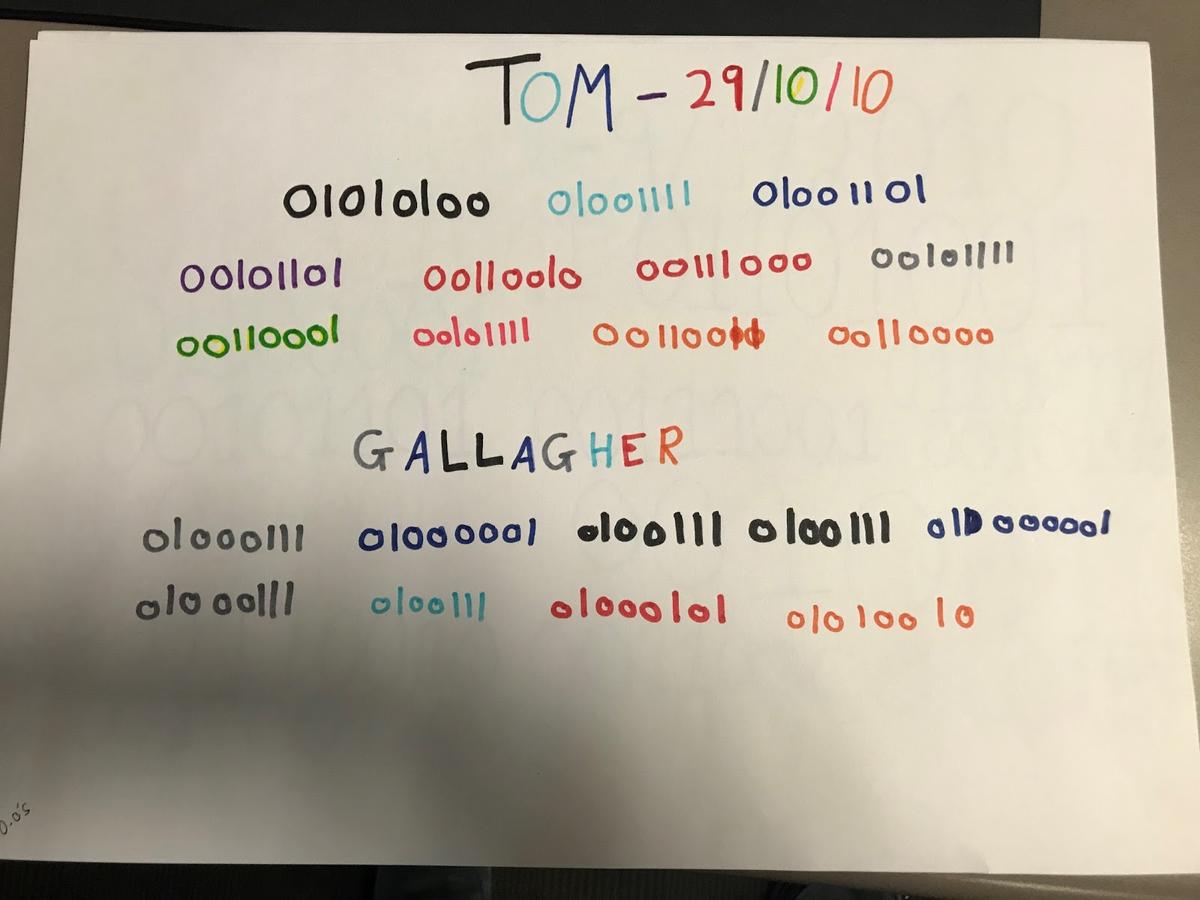 TOM - 29/10/10
01010100 01001111 01001101
00101101 00110010 00111000 00101111
00110001 00101111 00110000
GALLAGHER
01000111 01000001 0100111 0100111
01000111 0100111 01000101 01010010